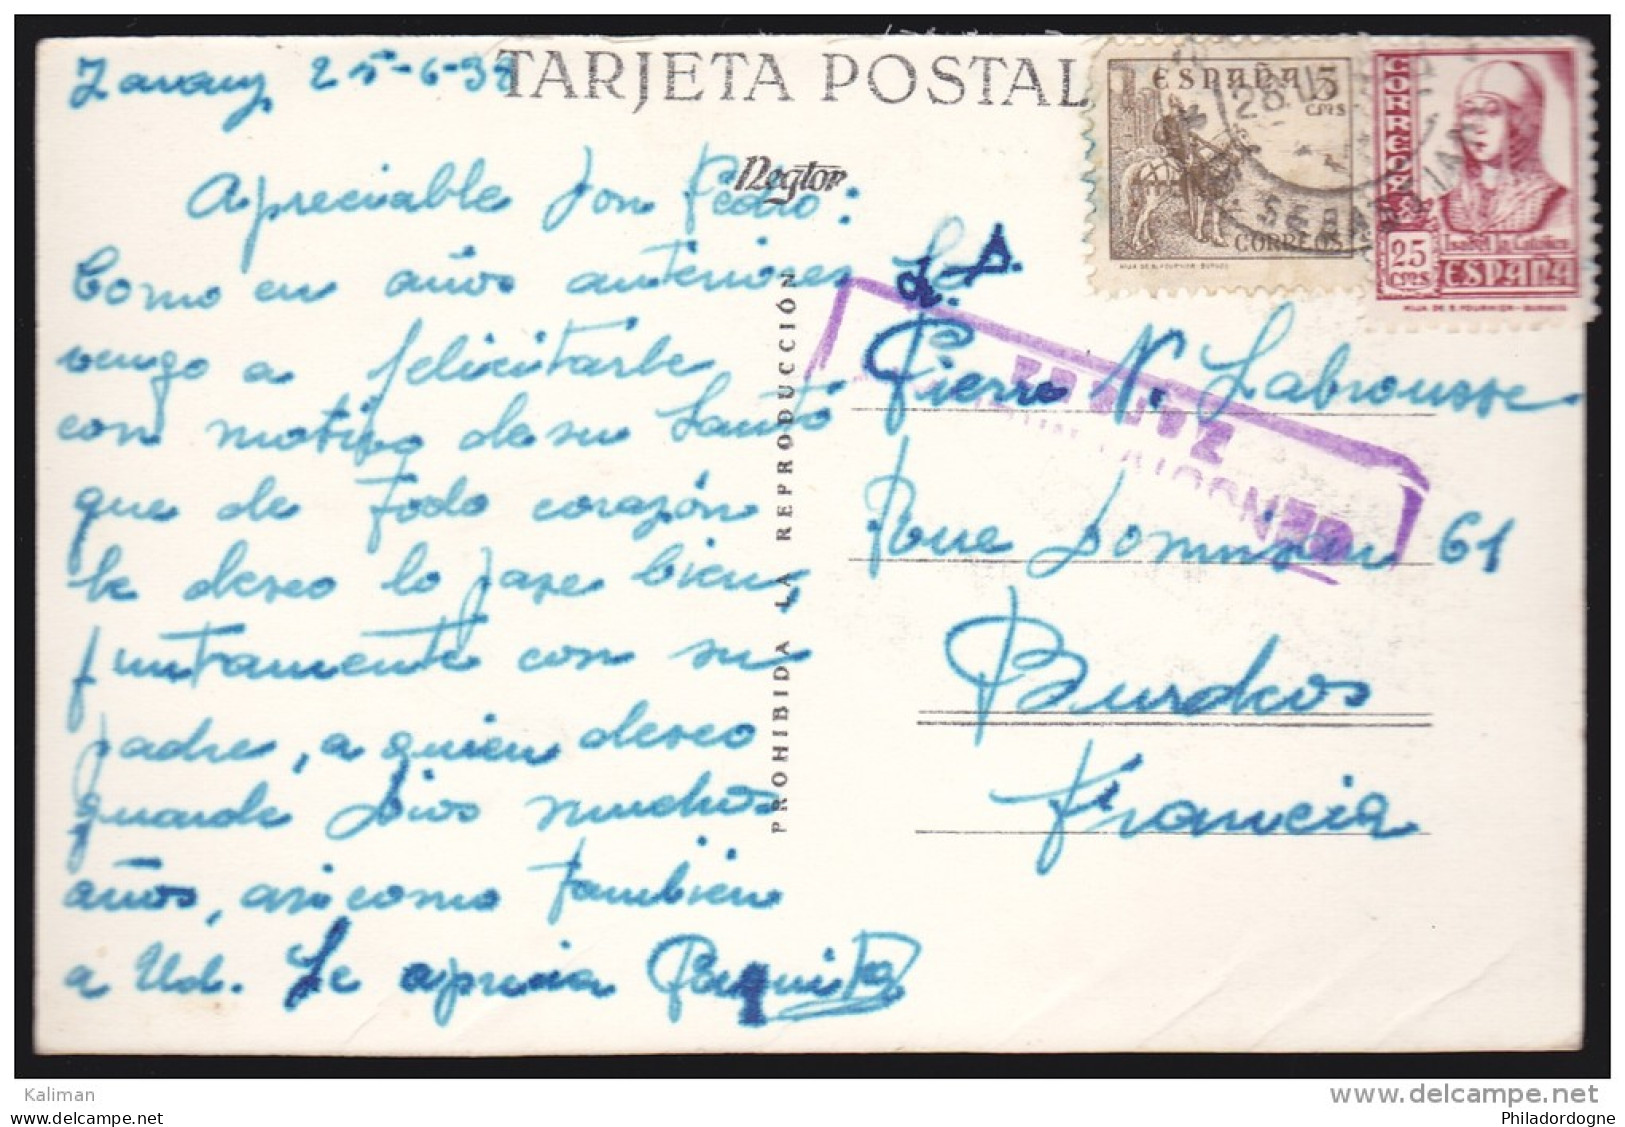 Zarauz 25-6-38
TARJETA POSTAL
Negtor
Apreciable Don Pedro:
Como en años anteriores
vengo a felicitarle
con motivo de su Santo
que de Todo corazón
le deseo lo pase bien,
juntamente con su
padre, a quien deseo
guarde Dios muchos
años, asi como Tambien
a Ud. Le aprecia Paquita
PROHIBIDA LA REPRODUCCIÓN
ESPAÑA 5
cms
CORREOS
HIJA DE B. FOURNIER-BURGOS
CORREOS
25
cms
Isabel la Católica
ESPAÑA
HIJA DE B. FOURNIER-BURGOS
28
Pierre N. Labrousse
Rue 61
Burdeos
Francia
Kaliman
www.delcampe.net
philadordogne.com
Philadordogne